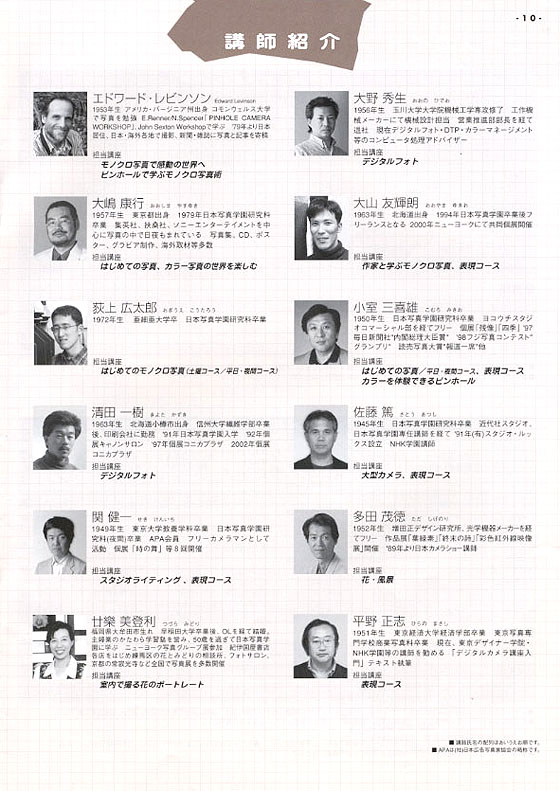 - 10 -
講師紹介
エドワード・レビンソン Edward Levinson
1953年生 アメリカ・バージニア州出身 コモンウェルス大学
で写真を勉強 E.Renner/N.Spencer「PINHOLE CAMERA
WORKSHOP」、John Sexton Workshopで学ぶ '79年より日本
居住、日本・海外各地で撮影、新聞・雑誌に写真と記事を寄稿
担当講座
モノクロ写真で感動の世界へ
ピンホールで学ぶモノクロ写真術
大嶋 康行 おおしま やすゆき
1957年生 東京都出身 1979年日本写真学園研究科
卒業 集英社、扶桑社、ソニーエンターテイメントを中
心に写真の中で日夜もまれている 写真集、CD、ポス
ター、グラビア制作、海外取材等多数
担当講座
はじめての写真、カラー写真の世界を楽しむ
荻上 広太郎 おぎうえ こうたろう
1972年生 亜細亜大学卒 日本写真学園研究科卒業
担当講座
はじめてのモノクロ写真(土曜コース/平日・夜間コース)
清田 一樹 きよた かずき
1963年生 北海道小樽市出身 信州大学繊維学部卒業
後、印刷会社に勤務 '91年日本写真学園入学 '92年個
展キャノンサロン '97年個展コニカプラザ 2002年個展
コニカプラザ
担当講座
デジタルフォト
関 健一 せき けんいち
1949年生 東京大学教養学科卒業 日本写真学園研
究科(夜間)卒業 APA会員 フリーカメラマンとして
活動 個展「時の舞」等8回開催
担当講座
スタジオライティング 、表現コース
廿樂 美登利 つづら みどり
福岡県大牟田市生れ 早稲田大学卒業後、OLを経て結婚。
主婦業のかたわら学習塾を営み、50歳を過ぎて日本写真学
園に学ぶ ニューヨーク写真グループ展参加 紀伊国屋書店
各店をはじめ練馬区の花とみどりの相談所、フォトサロン、
京都の常寂光寺など全国で写真展を多数開催
担当講座
室内で撮る花のポートレート
大野 秀生 おおの ひでお
1956年生 玉川大学大学院機械工学専攻修了 工作機
械メーカーにて機械設計担当 営業推進部部長を経て
退社 現在デジタルフォト・DTP・カラーマネージメント
等のコンピュータ処理アドバイザー
担当講座
デジタルフォト
大山 友輝朗 おおやま ゆきお
1963年生 北海道出身 1994年日本写真学園卒業後フ
リーランスとなる 2000年ニューヨークにて共同個展開催
担当講座
作家と学ぶモノクロ写真、表現コース
小室 三喜雄 こむろ みきお
1950年生 日本写真学園研究科卒業 ヨコウチスタジ
オコマーシャル部を経てフリー 個展「残像」「四季」 '97
毎日新聞社"内閣総理大臣賞" '98フジ写真コンテスト"
グランプリ" 読売写真大賞"報道一席"他
担当講座
はじめての写真/平日・夜間コース、表現コース
カラーを体験できるピンホール
佐藤 篤 さとう あつし
1945年生 日本写真学園研究科卒業 近代社スタジオ、
日本写真学園専任講師を経て '91年(有)スタジオ・ルッ
クス設立 NHK学園講師
担当講座
大型カメラ、表現コース
多田 茂徳 ただ しげのり
1952年生 増田正デザイン研究所、光学機器メーカーを経
てフリー 作品展「葉緑素」「終末の時」「彩色紅外線映像
展」開催 '89年より日本カメラショー講師
担当講座
花・風景
平野 正志 ひらの まさし
1951年生 東京経済大学経済学部卒業 東京写真専
門学校商業写真科卒業 現在、東京デザイナー学院・
NHK学園等の講師を勤める 「デジタルカメラ講座入
門」テキスト執筆
担当講座
表現コース
■ 講師氏名の配列はあいうえお順です。
■ APAは(社)日本広告写真家協会の略称です。